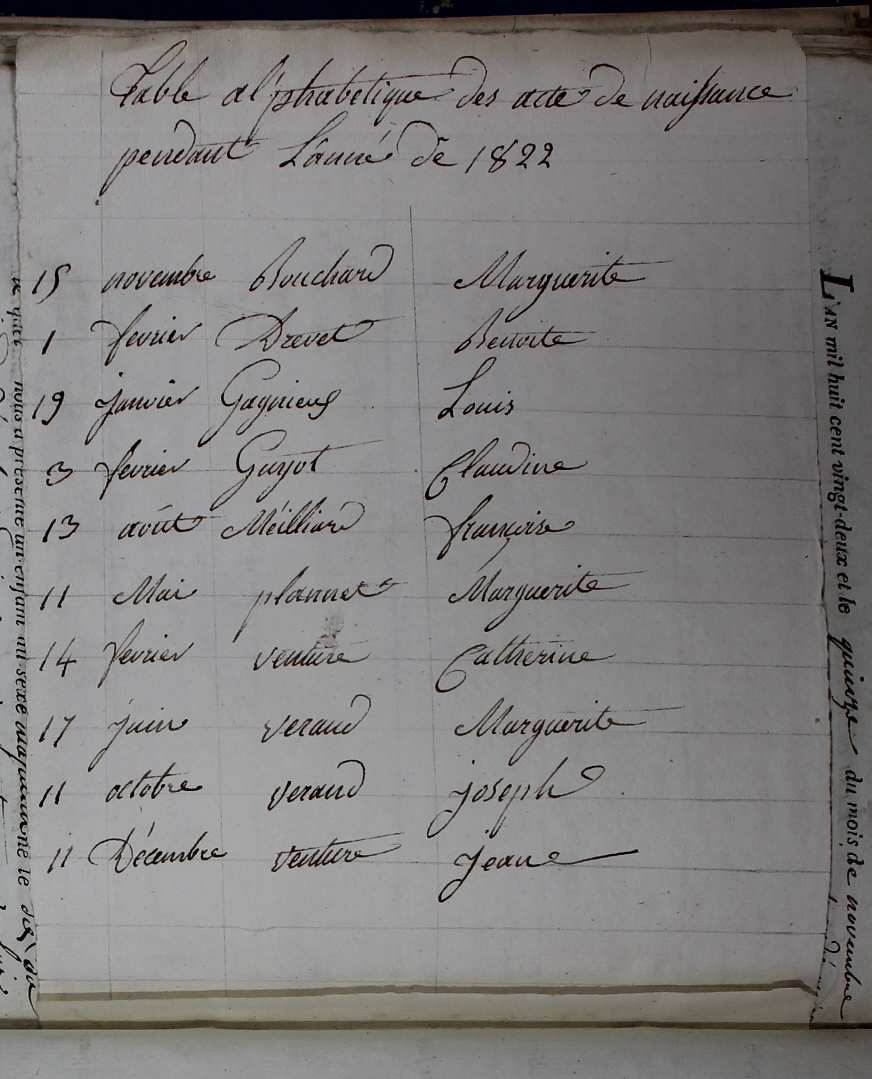 Table alphabetique des acte de naissance
pendant L'année de 1822
15 novembre Bouchard Marguerite
1 fevrier Drevet Benoite
19 janvier Gagnieux Louis
3 fevrier Guyot Claudine
13 août Méilliard françoise
11 Mai plannet Marguerite
14 fevrier venture Catherine
17 juin veraud Marguerite
11 octobre veraud joseph
11 Décembre venture jeane
L'AN mil huit cent vingt-deux et le quinze du mois de novembre
nous a présenté un enfant du sexe masculin né le